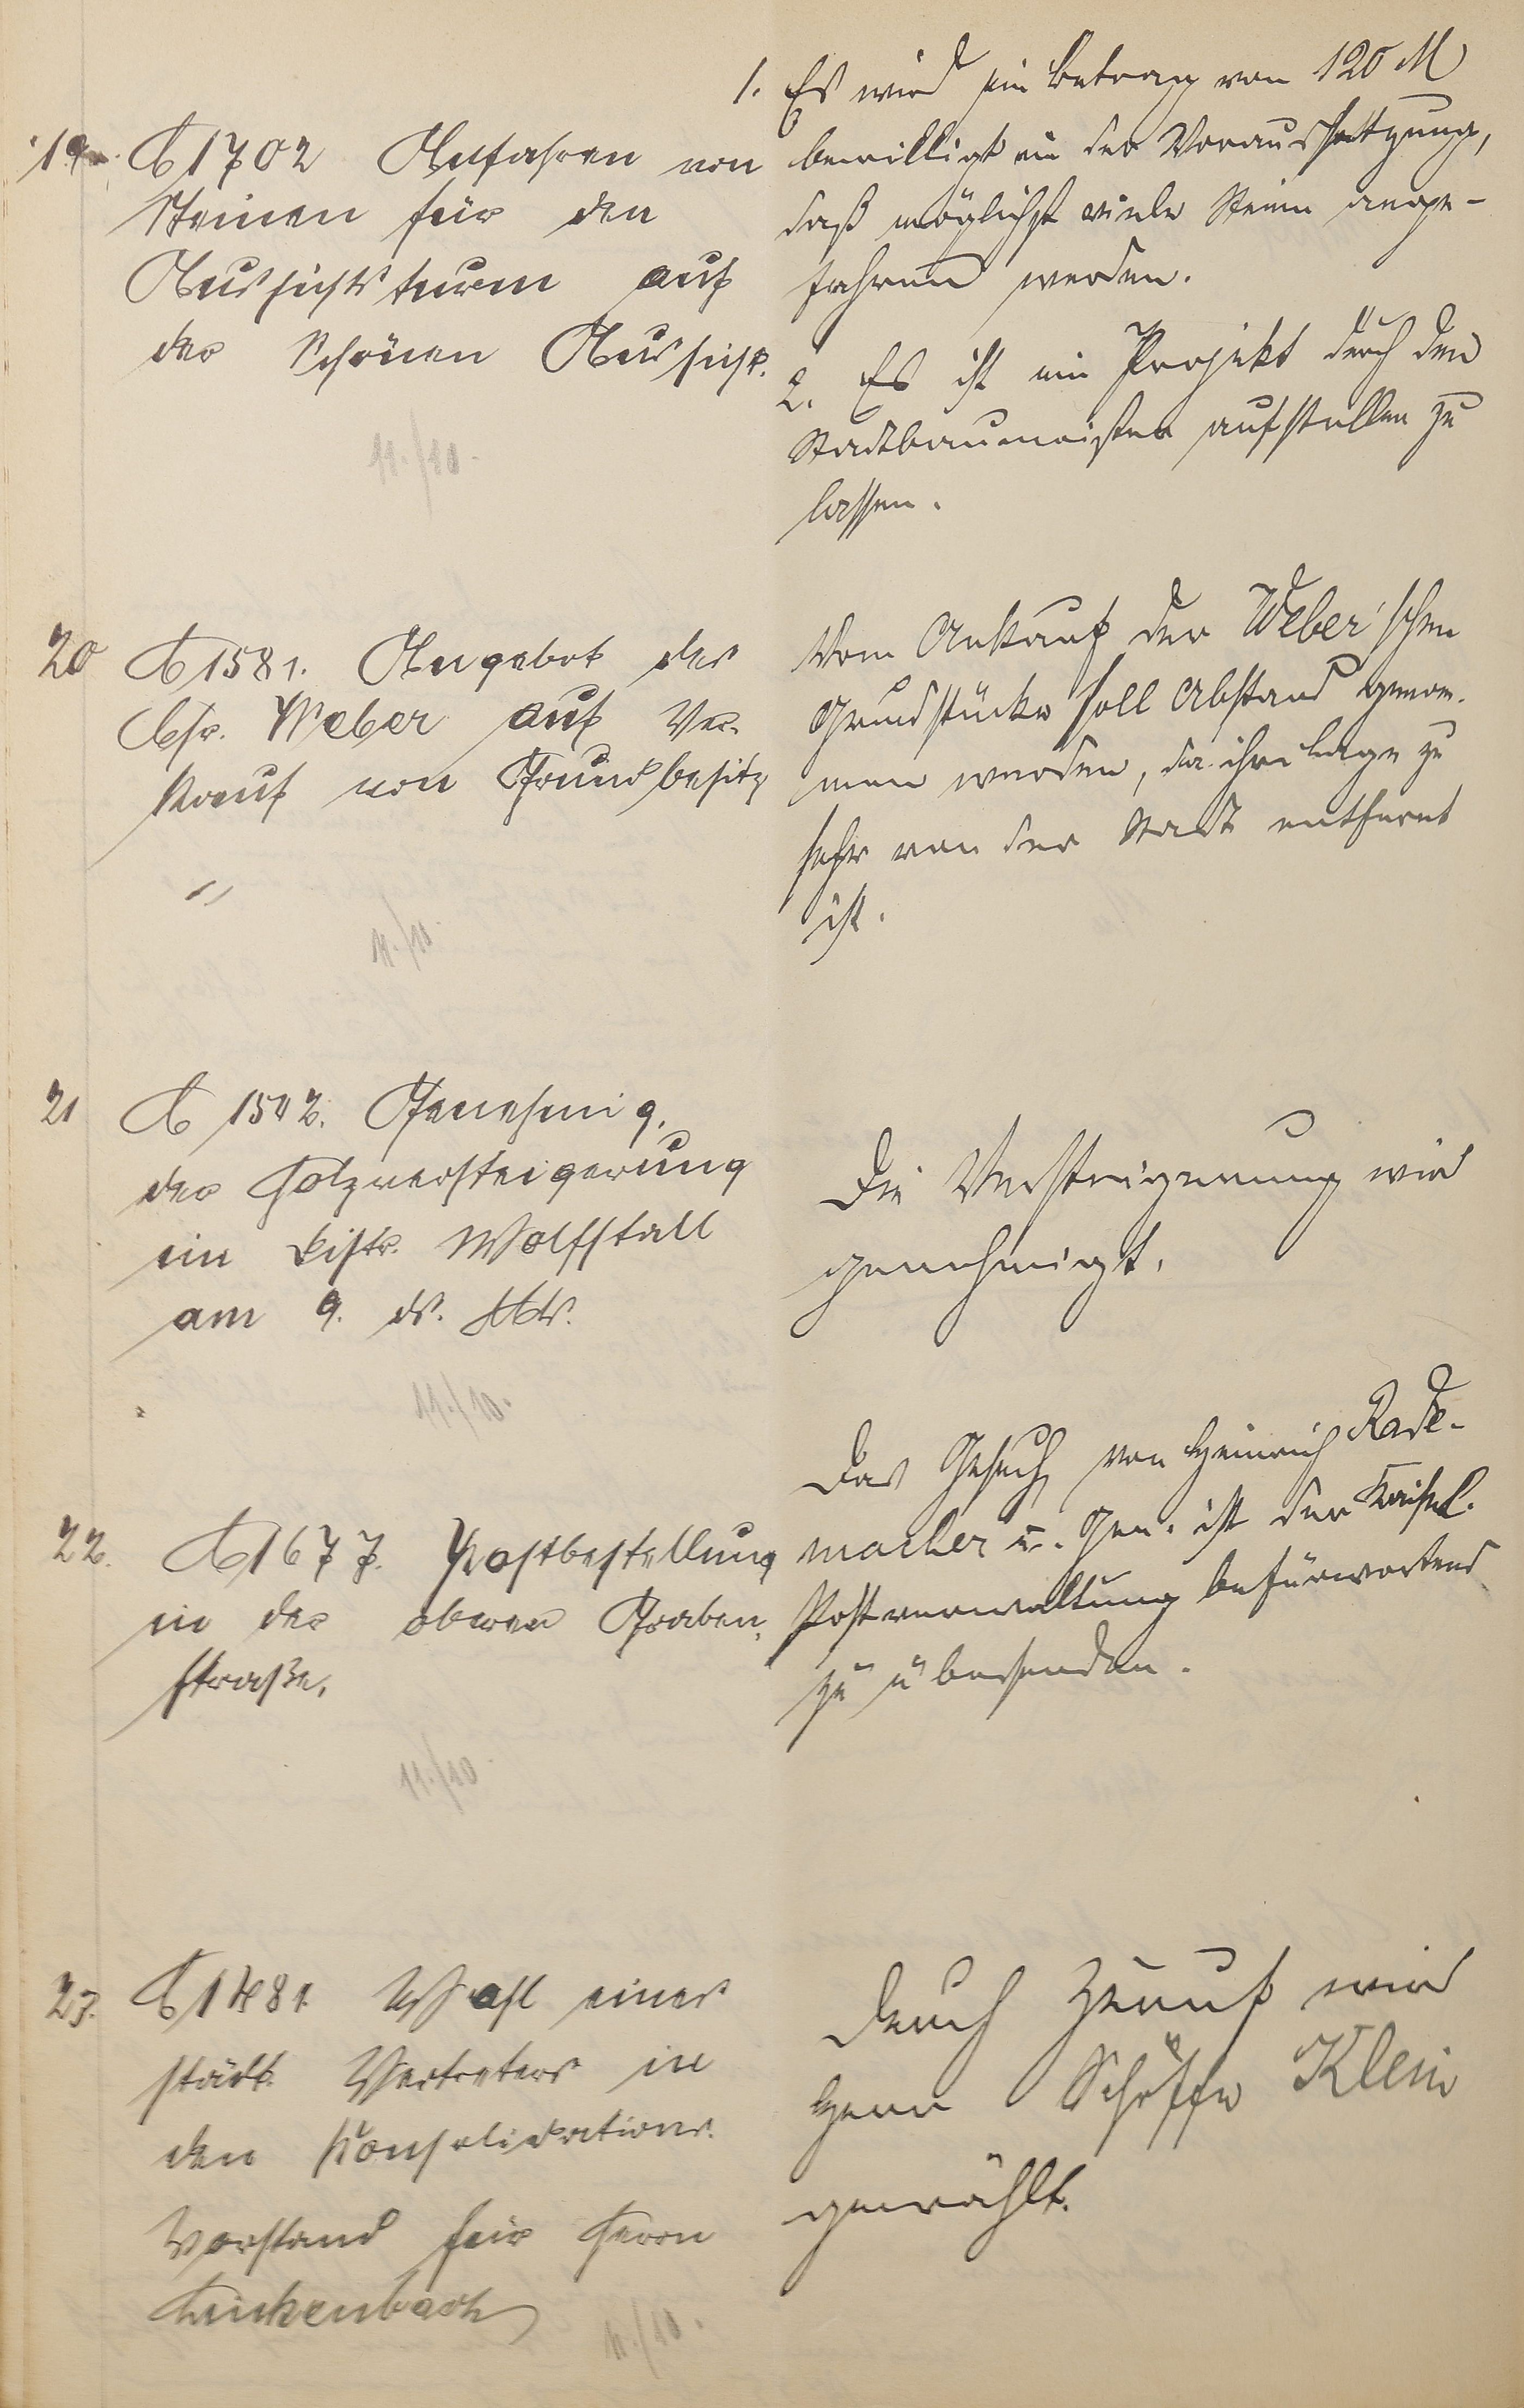 19. A 1702 Anfahren von
Steinen für den
Aussichtsturm auf
der Schönen Aussicht.
11./10.
1. Es wird ein Betrag von 120 M
bewilligt in der Voraussetzung,
daß möglichst viele Steine ange-
fahren werden.
2. Es ist ein Projekt durch den
Stadtbaumeister aufstellen zu
lassen.
20 A 1581. Angebot des
Chr. Weber auf Ver-
kauf von Grundbesitz
11./10.
Vom Ankauf der Weber'schen
Grundstücke soll Abstand genom-
men werden, da ihre Lage zu
sehr von der Stadt entfernt
ist.
21 A 1542. Genehmig.
der Holzversteigerung
im Distr. Wolfstall
am 9. ds. Mts.
11./10.
Die Versteigerung wird
genehmigt.
22. A 1677. Postbestellung
in der oberen Graben-
straße.
11./10.
Das Gesuch von Heinrich Rade-
macher u. Gen. ist der Kaiserl.
Postverwaltung befürwortend
zu übersenden.
23. A 1481. Wahl eines
städt. Vertreters in
den Konsolidations-
Vorstand für Herrn
Luckenbach
11./10.
Durch Zuruf wird
Herr Schöffe Klein
gewählt.